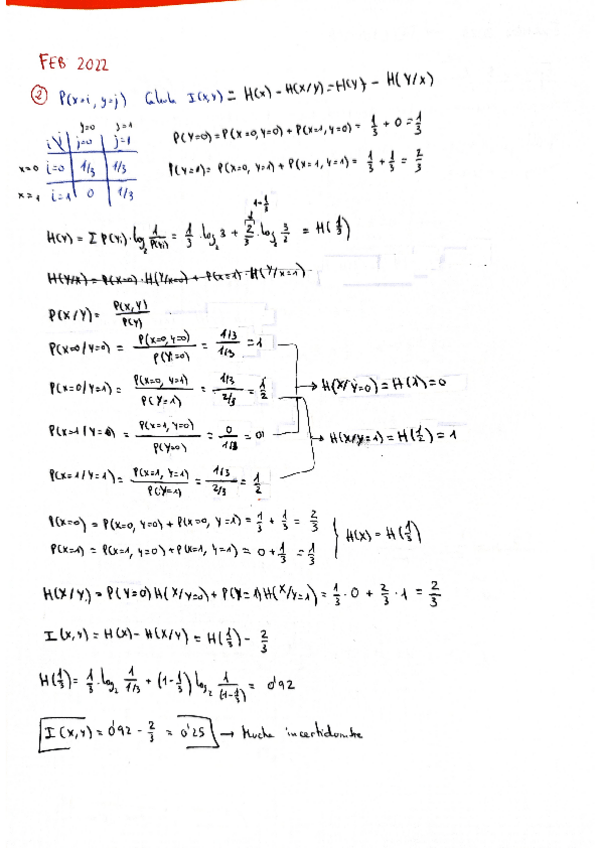 FEB 2022
② P(x=i, y=j) Calcula I(x,y) = H(x) - H(x/y) = H(y) - H(Y/x)
y=0 y=1
i\j j=0 j=1
x=0 i=0 1/3 1/3
x=1 i=1 0 1/3
P(Y=0) = P(x=0, y=0) + P(x=1, y=0) = 1/3 + 0 = 1/3
P(Y=1) = P(x=0, y=1) + P(x=1, y=1) = 1/3 + 1/3 = 2/3
1-1/3
H(Y) = Σ P(yi) · log₂ 1/P(yi) = 1/3 · log₂ 3 + 2/3 · log₂ 3/2 = H(1/3)
H(Y/x) = P(x=0) · H(Y/x=0) + P(x=1) · H(Y/x=1)
P(X/Y) = P(X,Y)/P(Y)
P(x=0/y=0) = P(x=0, y=0)/P(Y=0) = 1/3 / 1/3 = 1
P(x=0/y=1) = P(x=0, y=1)/P(Y=1) = 1/3 / 2/3 = 1/2 → H(X/Y=0) = H(1) = 0
P(x=1/y=0) = P(x=1, y=0)/P(Y=0) = 0 / 1/3 = 0 → H(X/Y=1) = H(1/2) = 1
P(x=1/y=1) = P(x=1, y=1)/P(Y=1) = 1/3 / 2/3 = 1/2
P(x=0) = P(x=0, y=0) + P(x=0, y=1) = 1/3 + 1/3 = 2/3
P(x=1) = P(x=1, y=0) + P(x=1, y=1) = 0 + 1/3 = 1/3 } H(X) = H(1/3)
H(X/Y) = P(Y=0) H(X/Y=0) + P(Y=1) H(X/Y=1) = 1/3 · 0 + 2/3 · 1 = 2/3
I(x,y) = H(x) - H(X/Y) = H(1/3) - 2/3
H(1/3) = 1/3 · log₂ 1/1/3 + (1-1/3) log₂ 1/(1-1/3) = 0'92
I(x,y) = 0'92 - 2/3 = 0'25 → Mucha incertidumbre